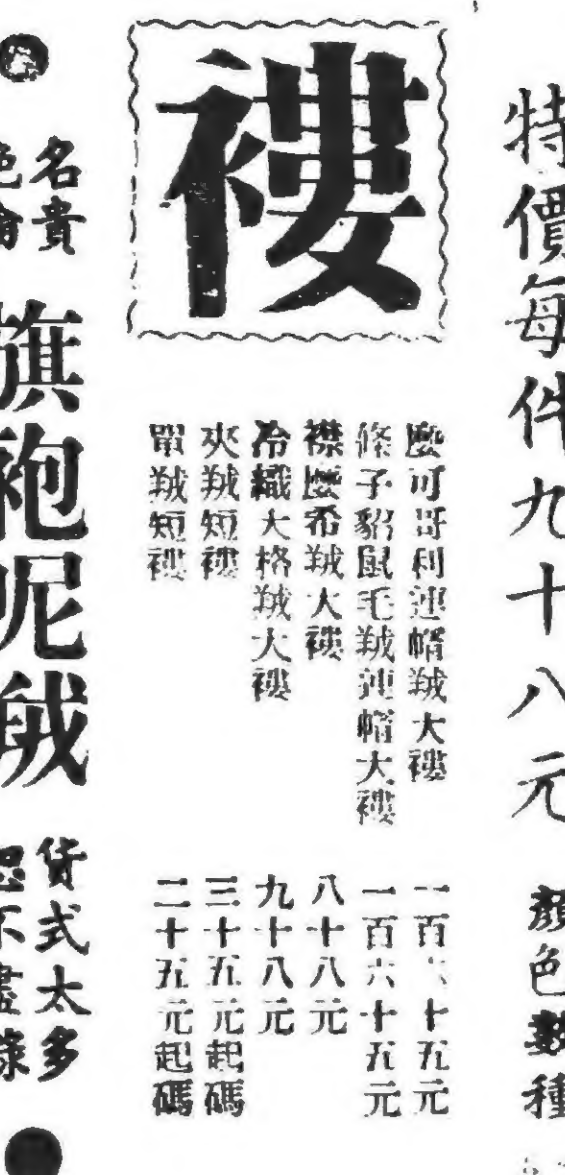 特價每件九十八元
顏色數種
褸
麼可哥利連帽羢大褸
一百六十五元
條子貂鼠毛羢連帽大褸
一百六十五元
襟麼希羢大褸
八十八元
冷織大格羢大褸
九十八元
夾羢短褸
三十五元起碼
單羢短褸
二十五元起碼
名貴
旗袍呢絨
貨式太多
不盡錄